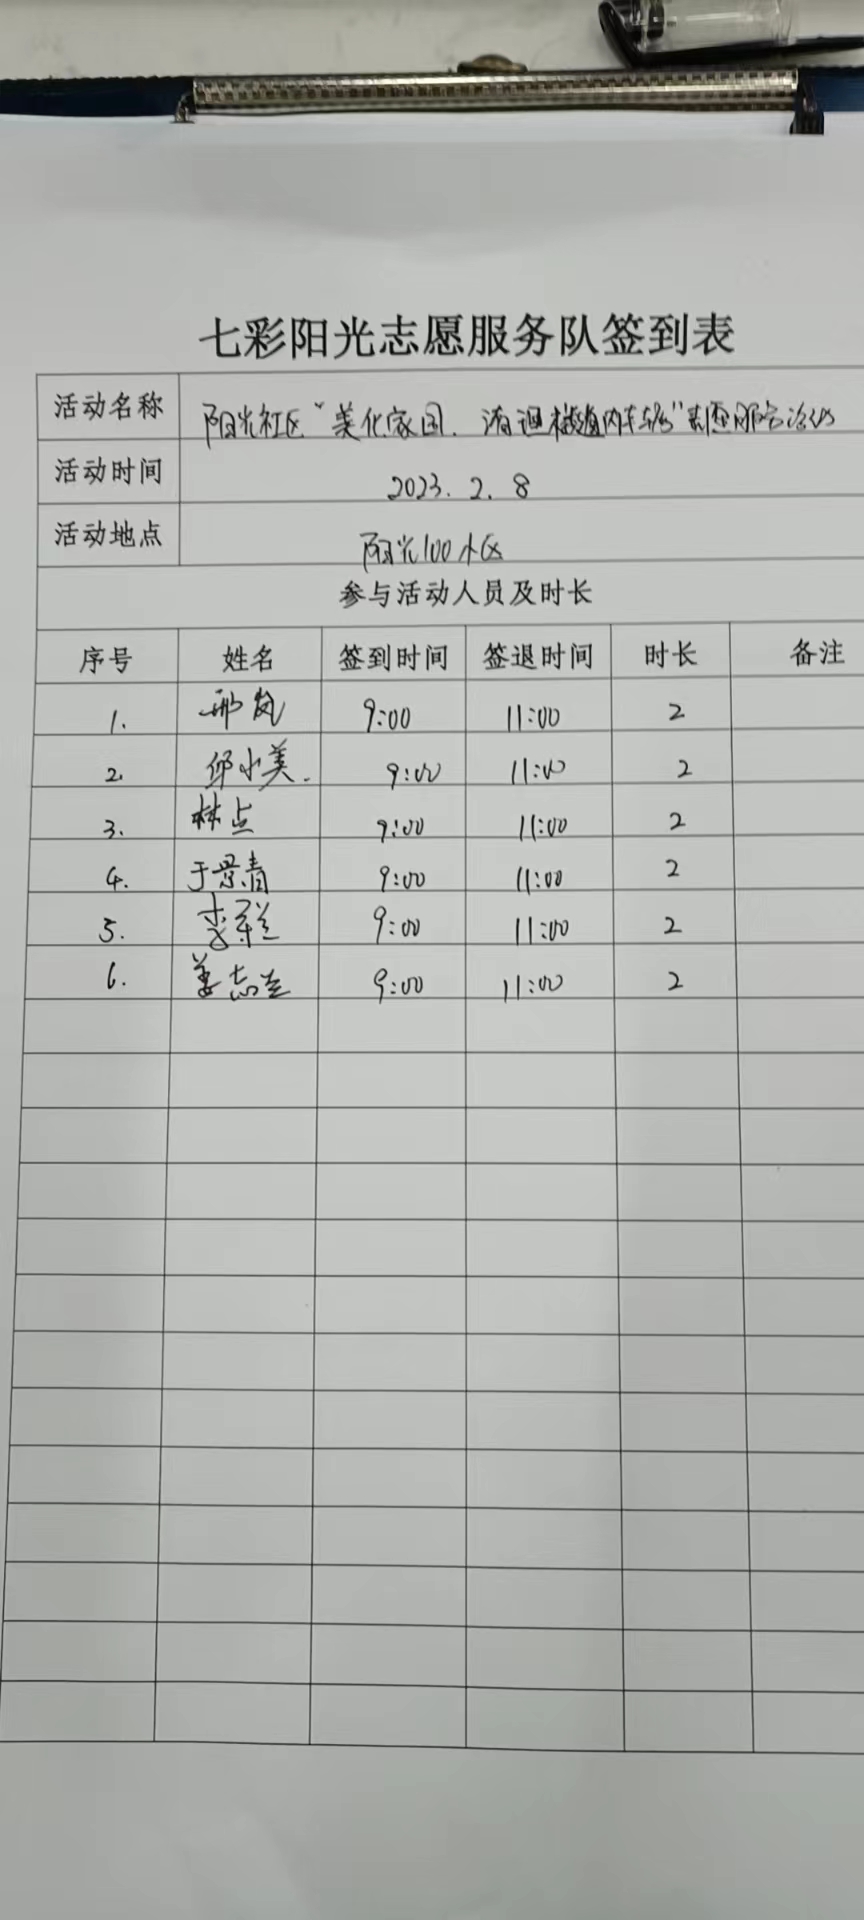 七彩阳光志愿服务队签到表
活动名称 阳光社区“美化家园、清理楼道内车辆”志愿服务活动
活动时间 2023.2.8
活动地点 阳光100小区
参与活动人员及时长
序号 姓名 签到时间 签退时间 时长 备注
1. 邢岚 9:00 11:00 2
2. 邱小美. 9:00 11:00 2
3. 林点 9:00 11:00 2
4. 于景青 9:00 11:00 2
5. 李 9:00 11:00 2
6. 姜志兰 9:00 11:00 2